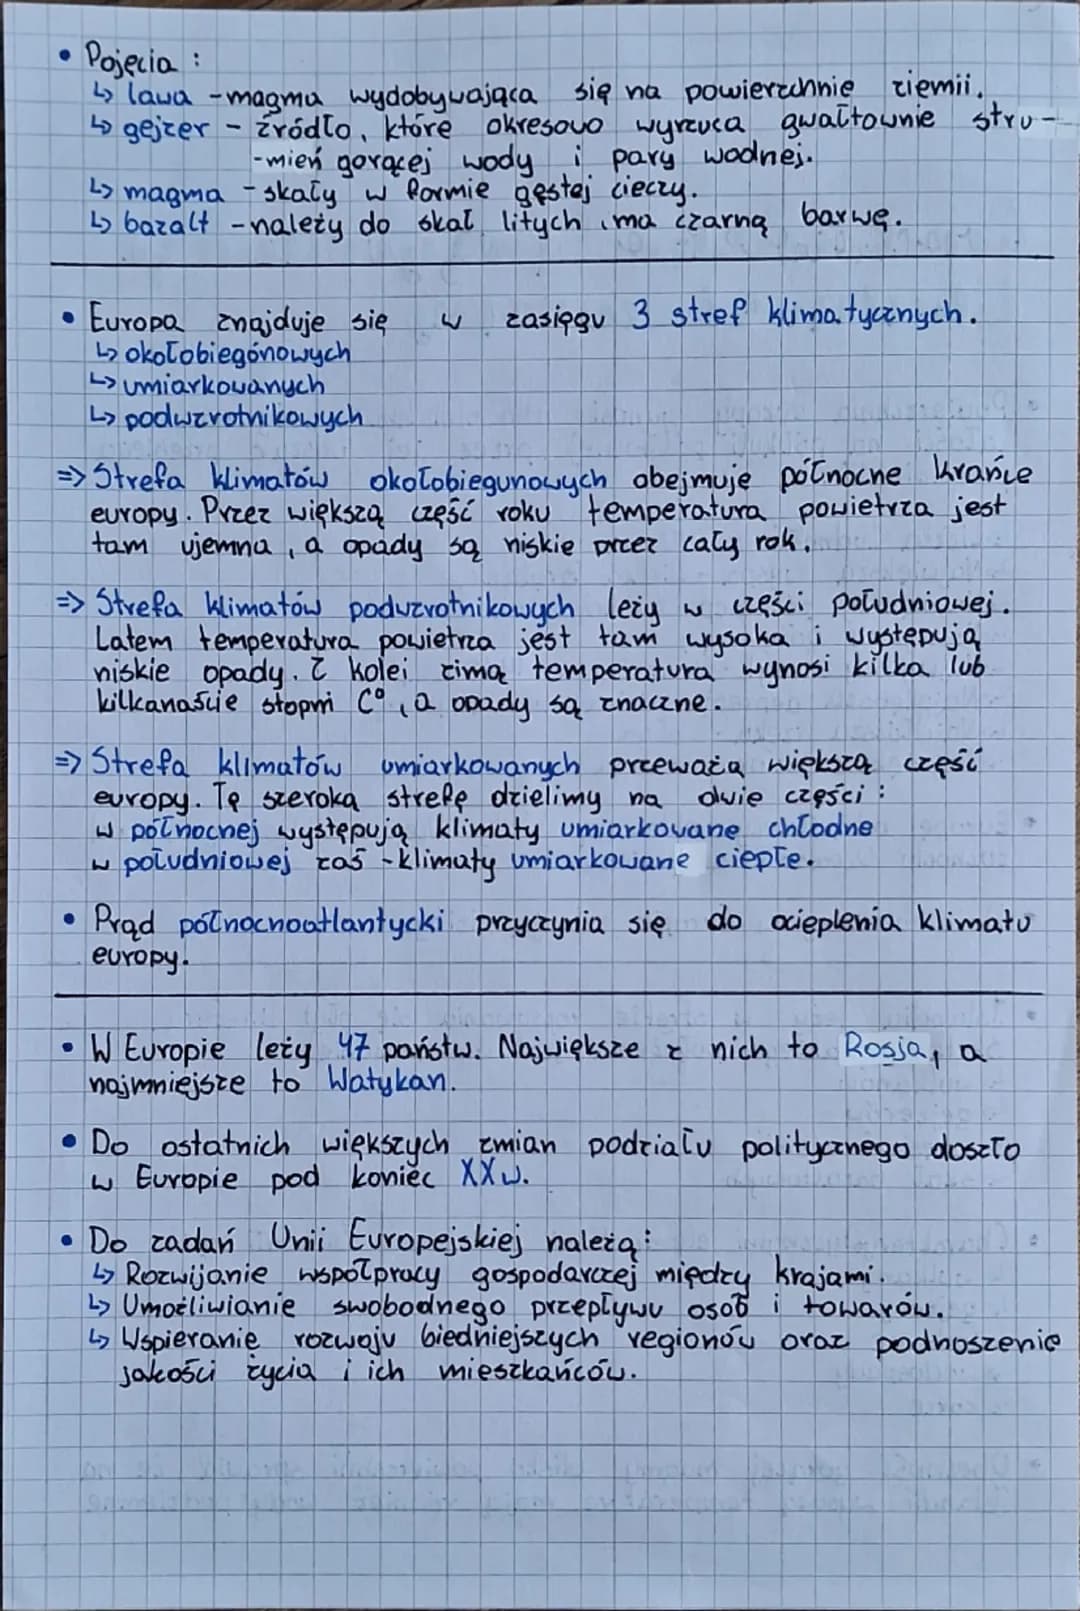 • Pojęcia :
↳ lawa - magma wydobywająca się na powierzchnię ziemii.
↳ gejzer - źródło, które okresowo wyrzuca gwałtownie stru-
-mień gorącej wody i pary wodnej.
↳ magma - skały w formie gęstej cieczy.
↳ bazalt - należy do skał litych, ma czarną barwę.
• Europa znajduje się w zasięgu 3 stref klimatycznych.
↳ okołobiegónowych
↳ umiarkowanych
↳ podwzrotnikowych
=> Strefa klimatów okołobiegunowych obejmuję północne krańce
europy. Przez większą część roku temperatura powietrza jest
tam ujemna, a opady są niskie przez cały rok.
=> Strefa klimatów podwzrotnikowych leży w części południowej.
Latem temperatura powietrza jest tam wysoka i występują
niskie opady. Z kolei zimą temperatura wynosi kilka lub
kilkanaście stopni C°, a opady są znaczne.
=> Strefa klimatów umiarkowanych przeważa większą część
europy. Tę szeroką strefę dzielimy na dwie części :
w północnej występują klimaty umiarkowane chłodne
w południowej zaś - klimaty umiarkowane ciepłe.
• Prąd północnoatlantycki przyczynia się do ocieplenia klimatu
europy.
• W Europie leży 47 państw. Największe z nich to Rosja, a
najmniejsze to Watykan.
• Do ostatnich większych zmian podziału politycznego doszło
w Europie pod koniec XXw.
• Do zadań Unii Europejskiej należą:
↳ Rozwijanie współpracy gospodarczej między krajami.
↳ Umożliwianie swobodnego przepływu osób i towarów.
↳ Wspieranie rozwoju biedniejszych regionów oraz podnoszenie
jakości życia i ich mieszkańców.